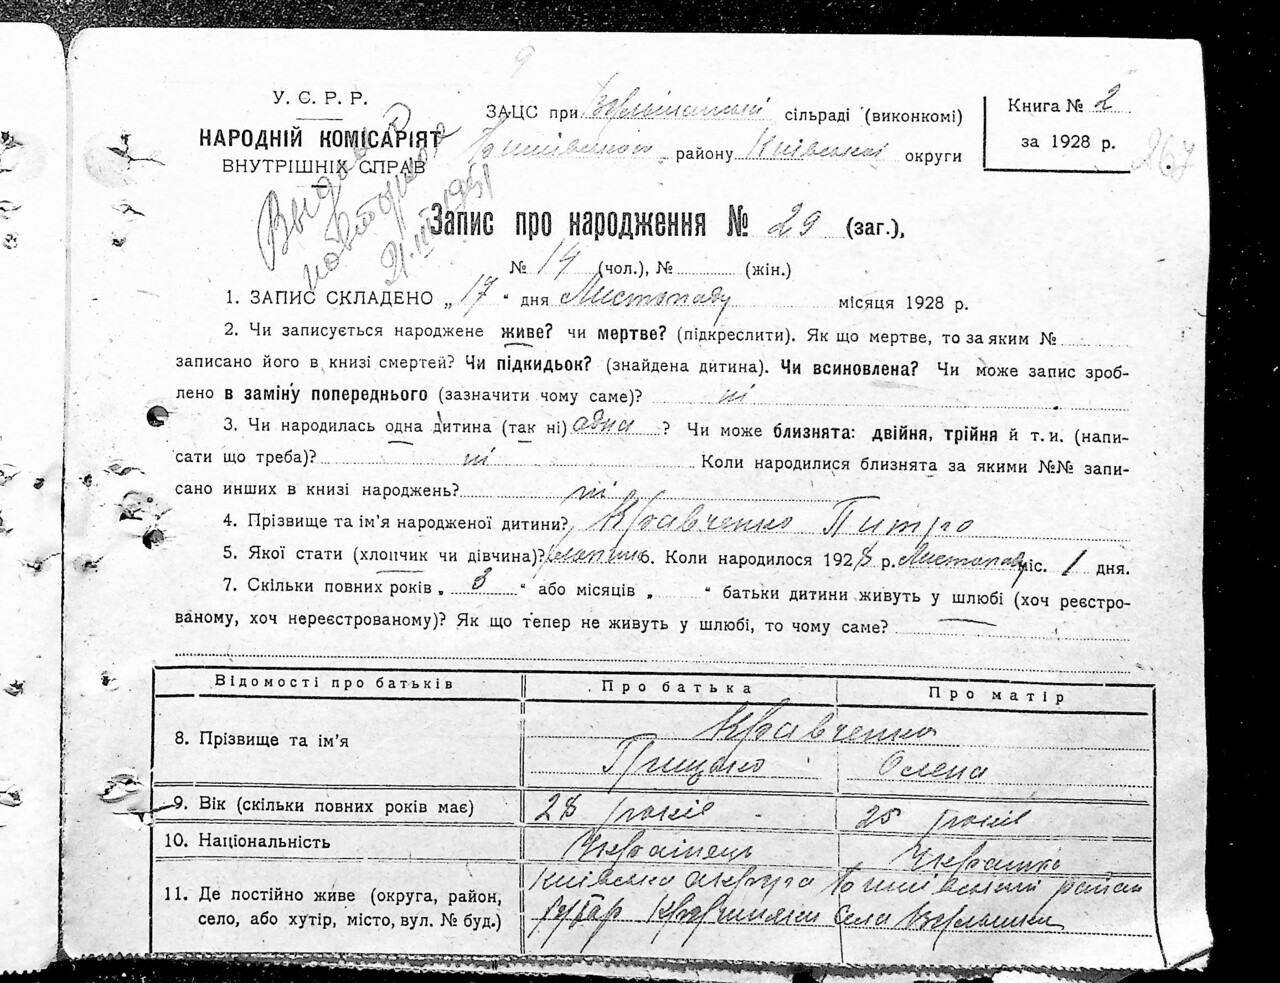 У. С. Р. Р.
НАРОДНІЙ КОМІСАРІЯТ
ВНУТРІШНІХ СПРАВ
ЗАЦС при сільраді (виконкомі)
району Київської округи
Книга № 2
за 1928 р.
267
21.III.1951
Запис про народження № 29 (заг.),
№ 14 (чол.), № (жін.)
1. ЗАПИС СКЛАДЕНО „ 17 " дня Листопаду місяця 1928 р.
2. Чи записується народжене живе? чи мертве? (підкреслити). Як що мертве, то за яким №
записано його в книзі смертей? Чи підкидьок? (знайдена дитина). Чи всиновлена? Чи може запис зроб-
лено в заміну попереднього (зазначити чому саме)? ні
3. Чи народилась одна дитина (так ні) одна ? Чи може близнята: двійня, трійня й т. и. (напи-
сати що треба)? ні Коли народилися близнята за якими №№ запи-
сано инших в книзі народжень? ні
4. Прізвище та ім'я народженої дитини? Кравченко Петро
5. Якої стати (хлопчик чи дівчина)? 6. Коли народилося 1928 р. Листопаду міс. 1 дня.
7. Скільки повних років „ 3 " або місяців „ " батьки дитини живуть у шлюбі (хоч реєстро-
ваному, хоч нереєстрованому)? Як що тепер не живуть у шлюбі, то чому саме?
Відомості про батьків Про батька Про матір
8. Прізвище та ім'я Кравченко
Грицько Олена
9. Вік (скільки повних років має) 28 років 25 років
10. Національність Українець Українка
11. Де постійно живе (округа, район,
село, або хутір, місто, вул. № буд.)
Київська округа район
Хутір села